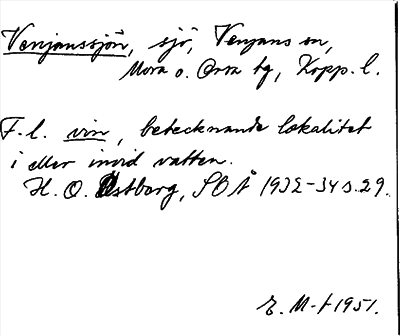 Venjanssjön, sjö, Venjans sn,
Mora o. Orsa tg, Kopp. l.
F.l. vin, betecknande lokalitet
i eller invid vatten.
H. O. Östberg, SOÅ 1932-34 s. 29.
E. M-t 1951.